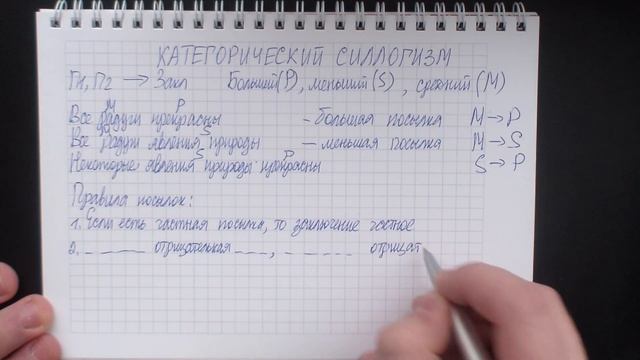 КАТЕГОРИЧЕСКИЙ СИЛЛОГИЗМ
П1, П2 → Закл Больший (P), меньший (S), средний (M)
M P
Все радуги прекрасны – большая посылка M → P
M S
Все радуги явления природы – меньшая посылка M → S
S P
Некоторые явления природы прекрасны S → P
Правила посылок:
1. Если есть частная посылка, то заключение частное
2. — отрицательная —, — отрицат